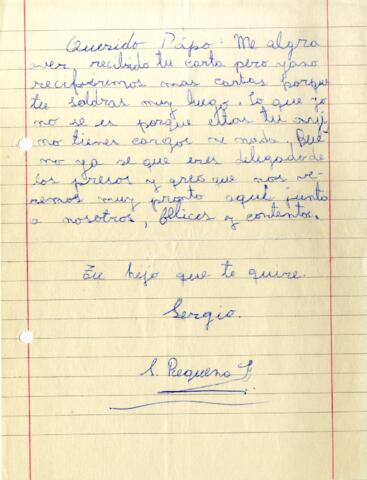 Querido Pápo: Me algra
aver recibido tu carta pero ya no
recibiremos mas cartas porque
tu soldras muy luego. Lo que yo
no se es porque estas tu ay si
no tienes cargos ni nada, Bue
no ya se que eres delegado de
los presos y creo que nos ve-
remos muy pronto aquí junto
a nosotros, felices y contentos.
Tu hijo que te quire.
Sergio.
S. Pequeno F